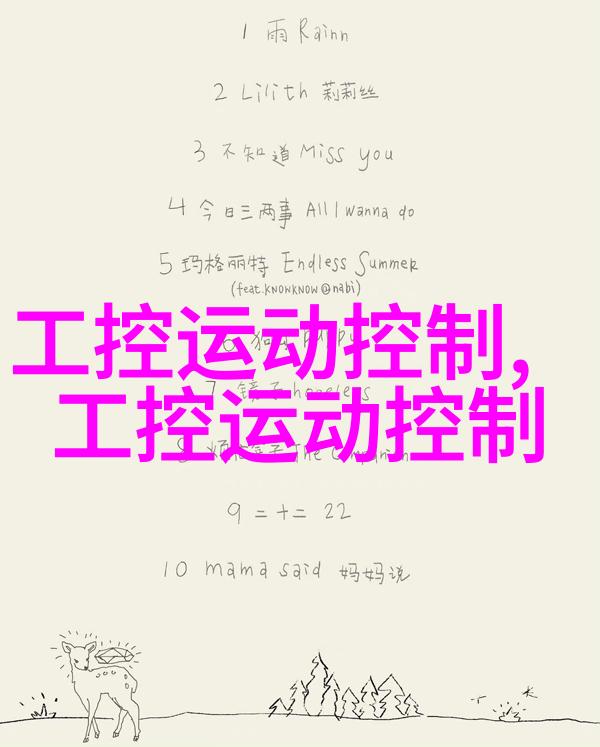 1 雨 Rainn
2 Lilith 莉莉丝
3 不知道 Miss you
4 今日三两事 All I wanna do
5 玛格丽特 Endless Summer
(feat.KNOWKNOW@nabi)
工控运动控制,
7 镜子 hopeless
工控运动控制
9 二十二 22
10 mama said 妈妈说